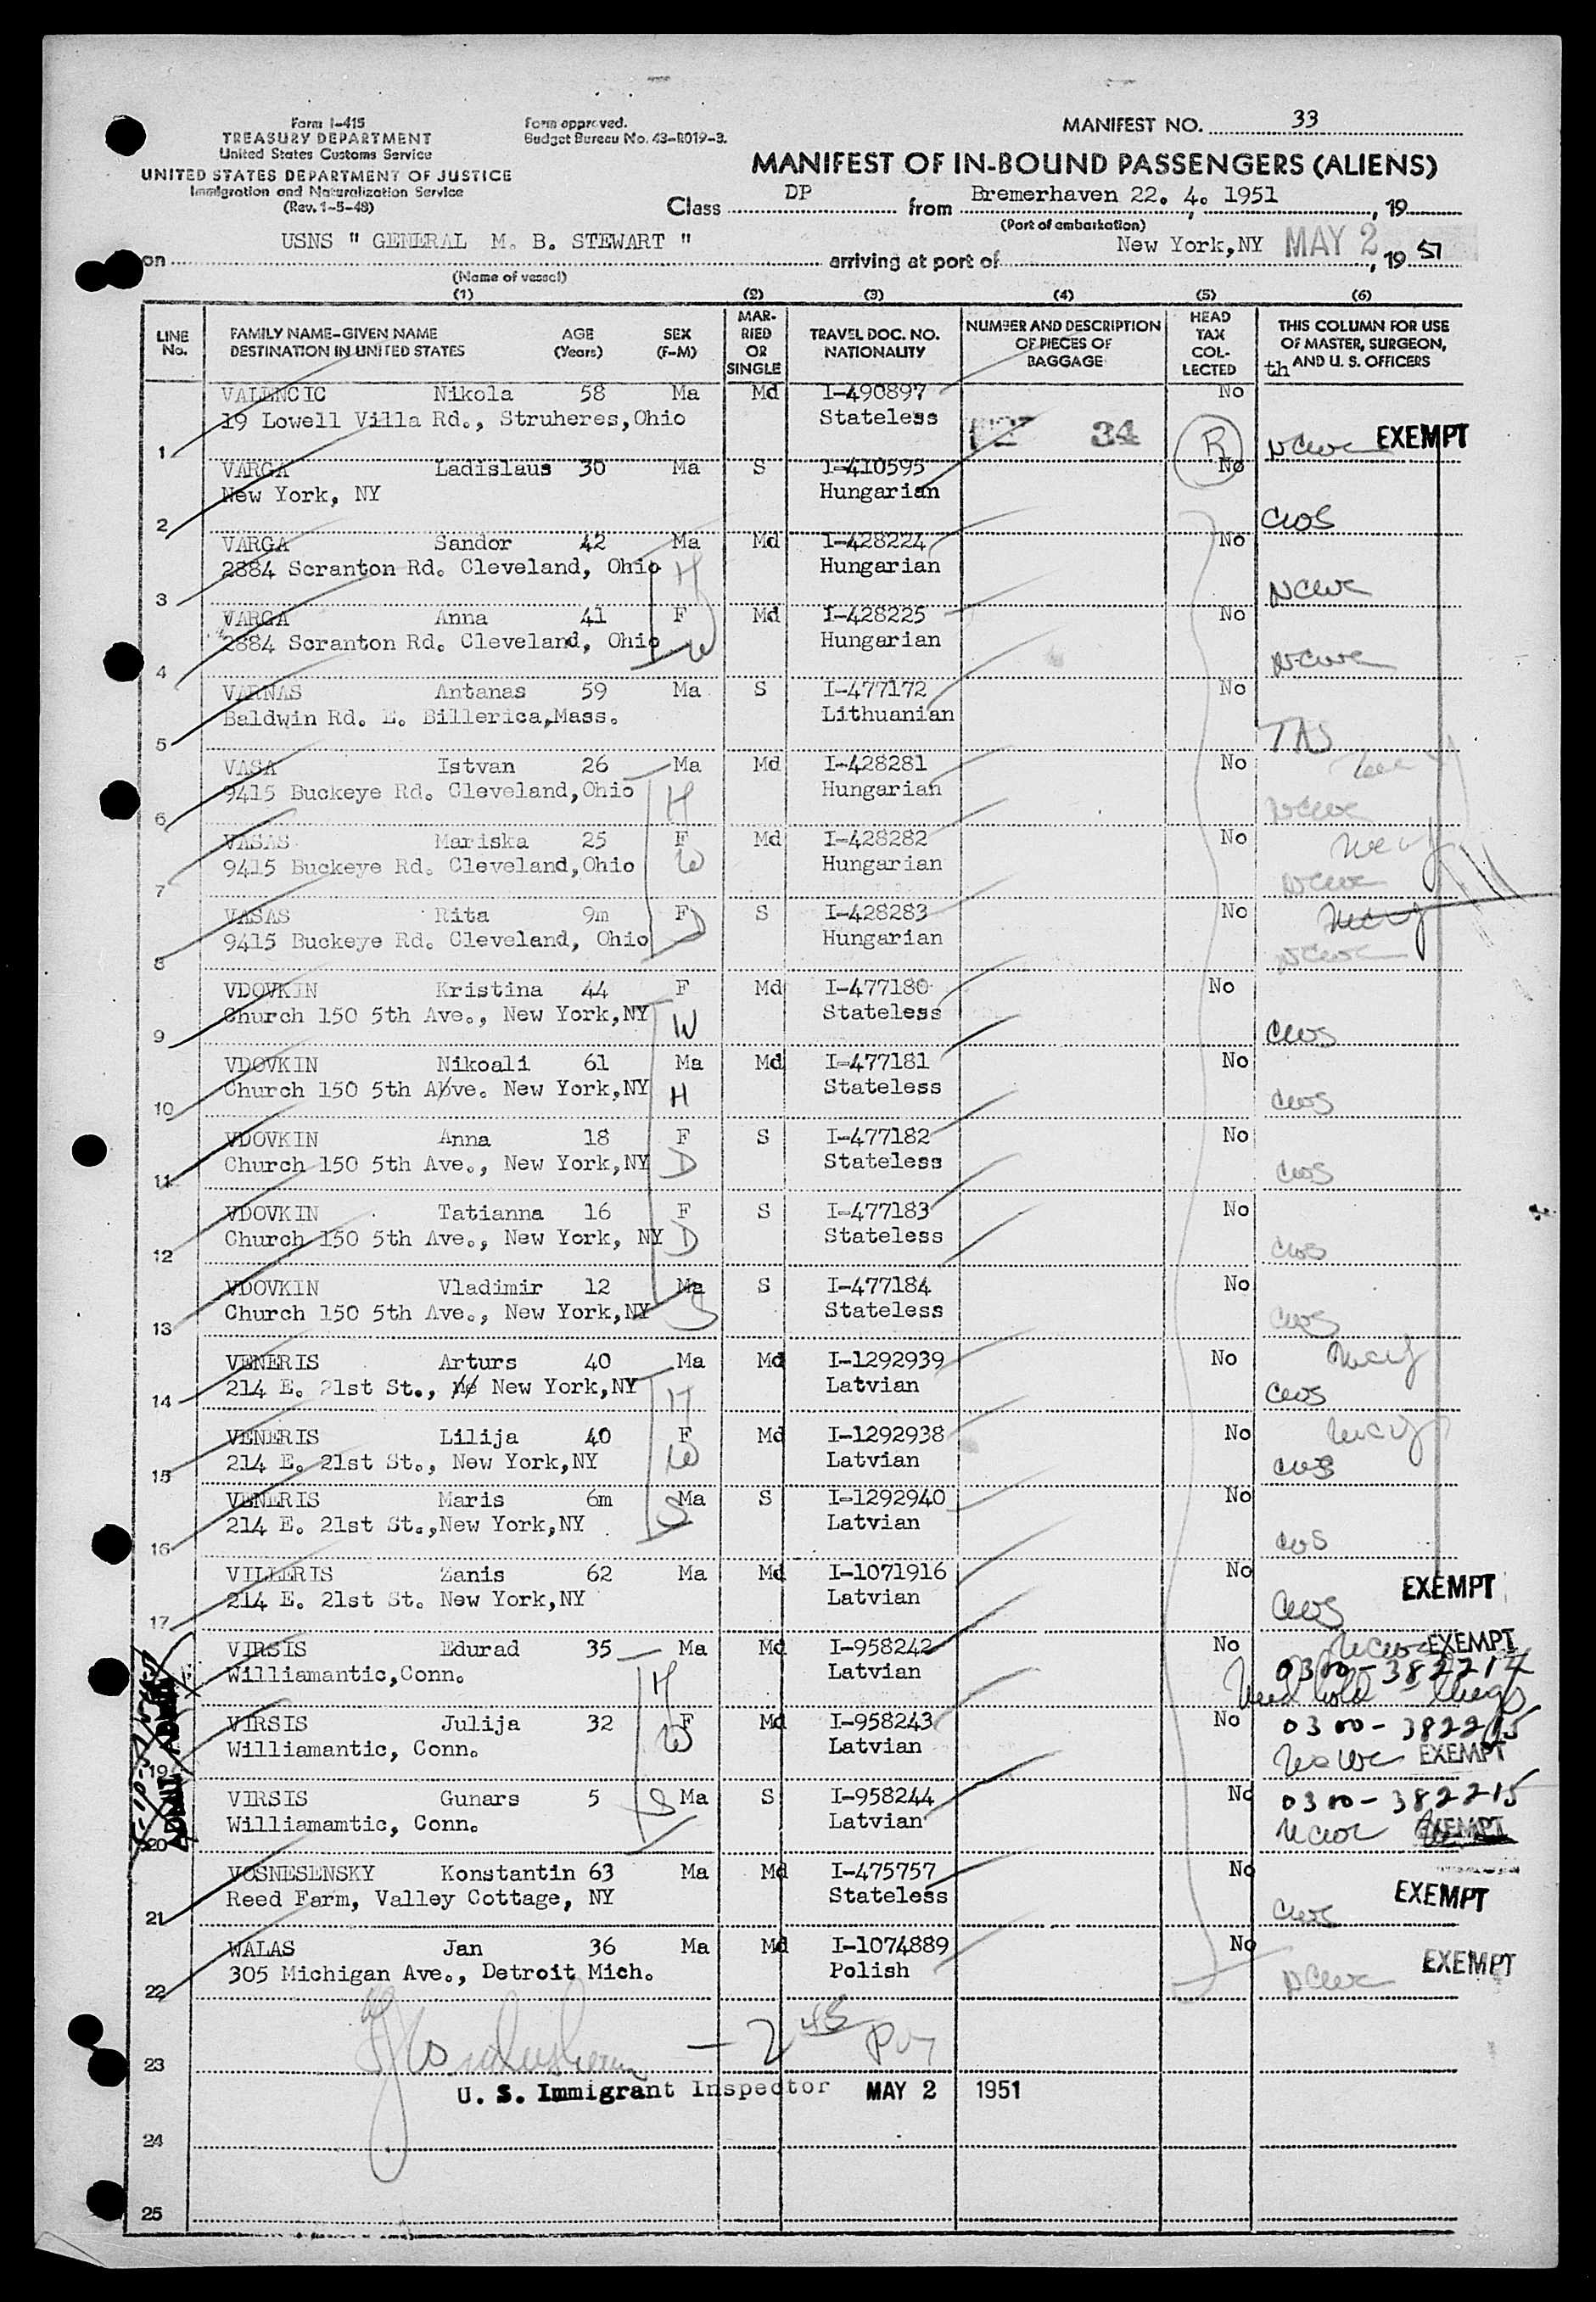 Form I-415
TREASURY DEPARTMENT
United States Customs Service
UNITED STATES DEPARTMENT OF JUSTICE
Immigration and Naturalization Service
(Rev. 1-5-48)
Form approved.
Budget Bureau No. 43-R019-3.
MANIFEST NO. 33
MANIFEST OF IN-BOUND PASSENGERS (ALIENS)
Class DP from Bremerhaven 22. 4. 1951, 19
(Port of embarkation)
on USNS " GENERAL M. B. STEWART " arriving at port of New York,NY MAY 2, 19 51
(Name of vessel)
(1) (2) (3) (4) (5) (6)
LINE No. FAMILY NAME-GIVEN NAME DESTINATION IN UNITED STATES AGE (Years) SEX (F-M) MARRIED OR SINGLE TRAVEL DOC. NO. NATIONALITY NUMBER AND DESCRIPTION OF PIECES OF BAGGAGE HEAD TAX COLLECTED THIS COLUMN FOR USE OF MASTER, SURGEON, AND U. S. OFFICERS
th
VALENCIC Nikola 58 Ma Md I-490897 No
19 Lowell Villa Rd., Struheres,Ohio Stateless
1 34 R NCWC EXEMPT
VARGA Ladislaus 30 Ma S I-410595 No
New York, NY Hungarian
2 CWS
VARGA Sandor 42 Ma Md I-428224 No
2884 Scranton Rd. Cleveland, Ohio H Hungarian
3 NCWC
VARGA Anna 41 F Md I-428225 No
2884 Scranton Rd. Cleveland, Ohio W Hungarian
4 NCWC
VARNAS Antanas 59 Ma S I-477172 No
Baldwin Rd. E. Billerica,Mass. Lithuanian
5
VASA Istvan 26 Ma Md I-428281 No
9415 Buckeye Rd. Cleveland,Ohio H Hungarian
6 NCWC
VASAS Mariska 25 F Md I-428282 No
9415 Buckeye Rd. Cleveland,Ohio W Hungarian
7 NCWC
VASAS Rita 9m F S I-428283 No
9415 Buckeye Rd. Cleveland, Ohio D Hungarian
8 NCWC
VDOVKIN Kristina 44 F Md I-477180 No
Church 150 5th Ave., New York,NY W Stateless
9 CWS
VDOVKIN Nikoali 61 Ma Md I-477181 No
Church 150 5th Abve. New York,NY H Stateless
10 CWS
VDOVKIN Anna 18 F S I-477182 No
Church 150 5th Ave., New York,NY D Stateless
11 CWS
VDOVKIN Tatianna 16 F S I-477183 No
Church 150 5th Ave., New York, NY D Stateless
12 CWS
VDOVKIN Vladimir 12 Ma S I-477184 No
Church 150 5th Ave., New York,NY S Stateless
13 CWS
VENERIS Arturs 40 Ma Md I-1292939 No
214 E. 21st St., ne New York,NY H Latvian
14 CWS
VENERIS Lilija 40 F Md I-1292938 No
214 E. 21st St., New York,NY W Latvian
15 CWS
VENERIS Maris 6m Ma S I-1292940 No
214 E. 21st St.,New York,NY S Latvian
16 CWS
VILLERIS Zanis 62 Ma Md I-1071916 No
214 E. 21st St. New York,NY Latvian EXEMPT
17 CWS
VIRSIS Edurad 35 Ma Md I-958242 No NCWC EXEMPT
Williamantic,Conn. H Latvian
VIRSIS Julija 32 F Md I-958243 No 0300-382215
Williamantic, Conn. W Latvian NCWC EXEMPT
19
VIRSIS Gunars 5 S Ma S I-958244 No 0300-382215
Williamamtic, Conn. Latvian NCWC EXEMPT
20
VOSNESENSKY Konstantin 63 Ma Md I-475757 No
Reed Farm, Valley Cottage, NY Stateless EXEMPT
21 CWS
WALAS Jan 36 Ma Md I-1074889 No
305 Michigan Ave., Detroit Mich. Polish NCWC EXEMPT
22
23
U. S. Immigrant Inspector MAY 2 1951
24
25